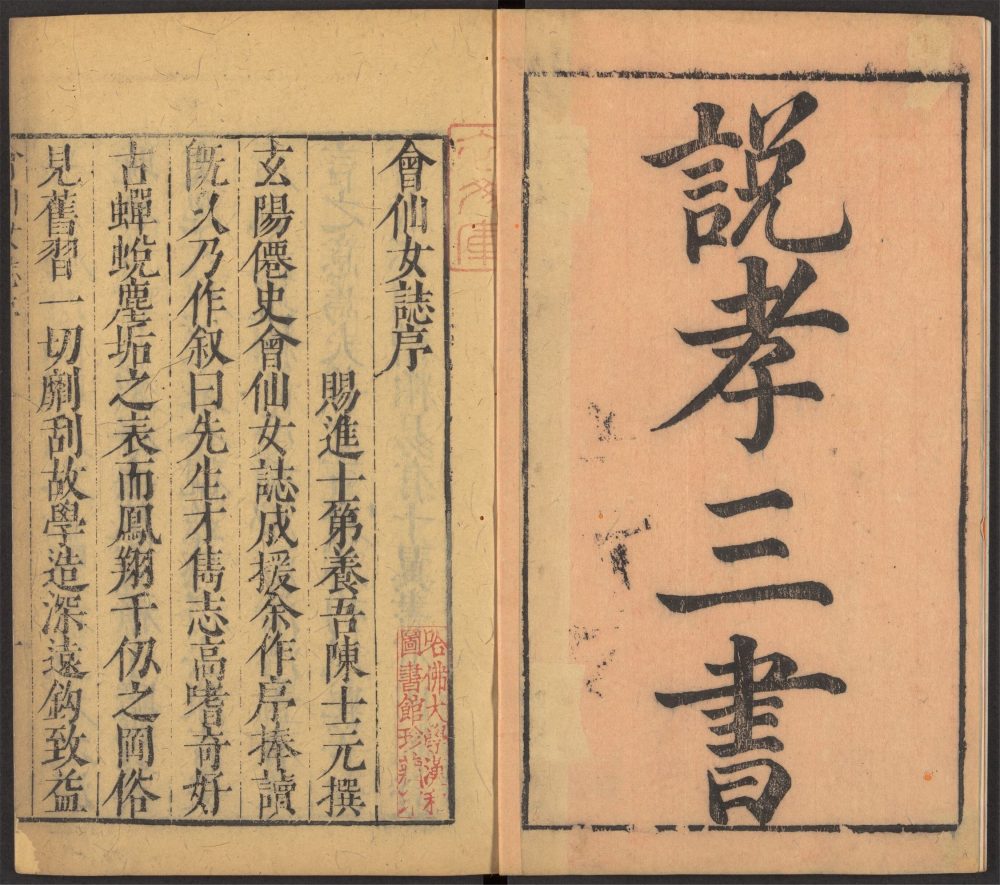 説孝三書
會仙女誌序
賜進士第養吾陳士元撰
玄陽僊史會仙女誌成援余作序捧讀
既久乃作叙曰先生才雋志高嗜奇好
古蟬蛻塵垢之表而鳳翔千仭之岡俗
見舊習一切劘刮故學造深遠鈎致益
哈佛大學漢和
圖書館珍藏